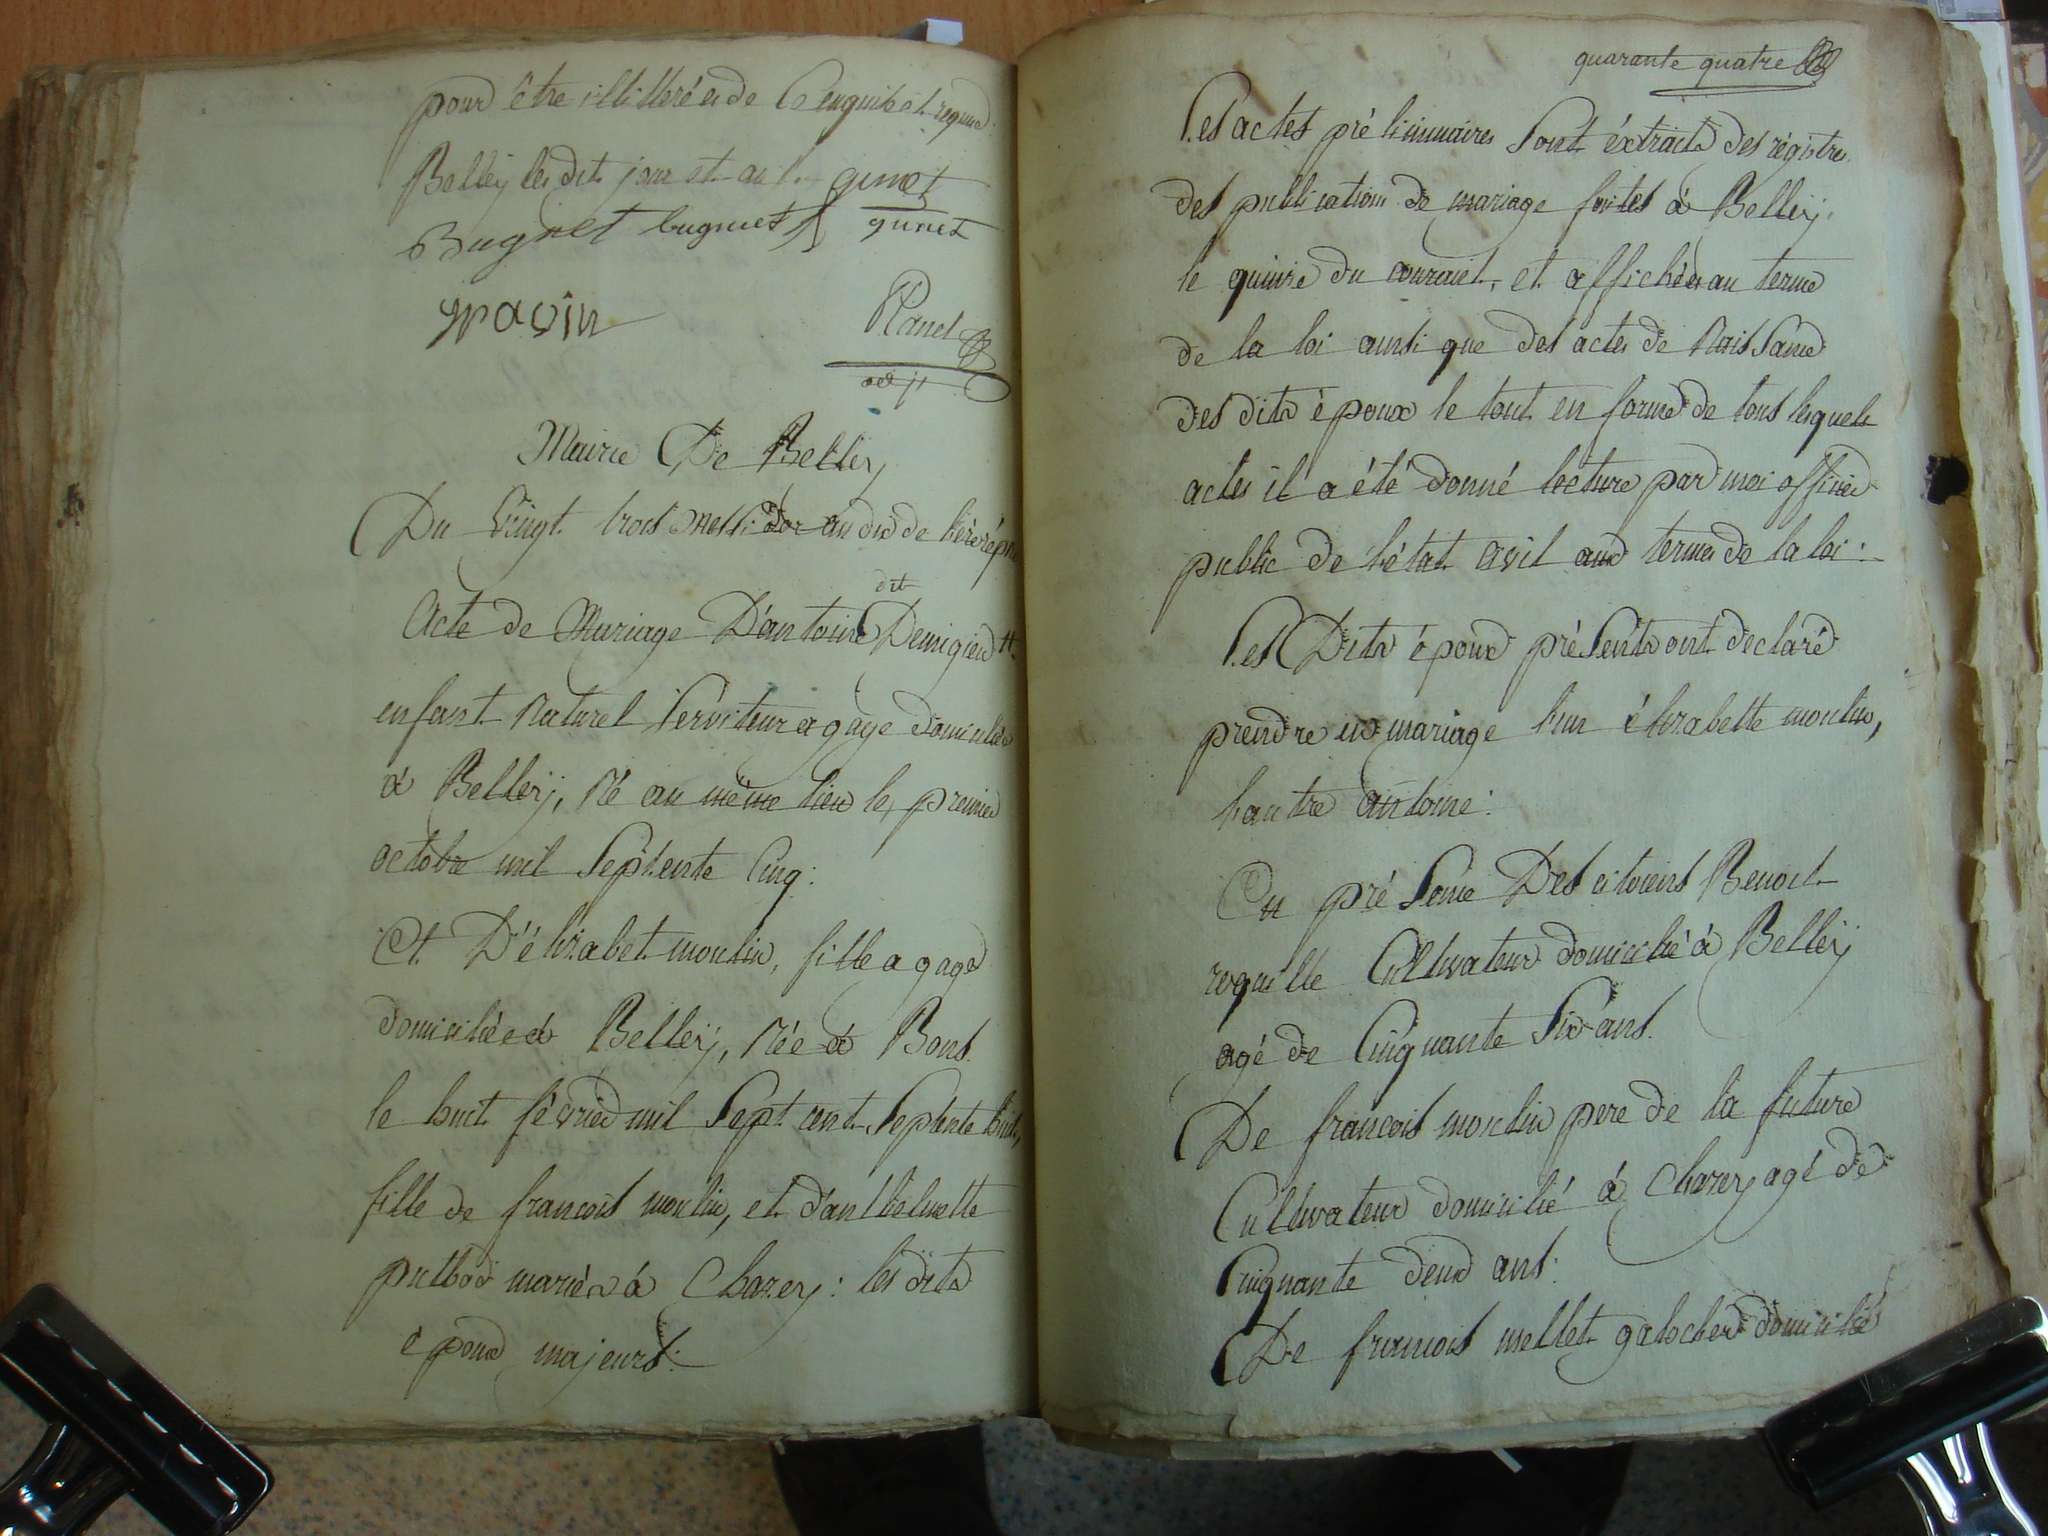 pour être illitteré de Ce enquis et requis.
Belley les dit jour et an ginet
Bugnet bugniet ginet
maçin
Planet
adj
Mairie De Belleÿ
Du Vingt trois messidor an dix de l'ère rép
dit
Acte de Mariage D'antoine Demigieux
enfant Naturel Serviteur a gage domicilié
à Belleÿ, Né au même lieu le premier
octobre mil Septente Cinq:
Et D'élizabet moulin, fille a gage
domiciliée à Belleÿ, Née à Bons
le huit février mil Sept cent Septente huit,
fille de francois moulin, et d'anthelmette
puthod mariés à Chazey: les dits
époux majeurs:
quarante quatre
Les actes préliminaires Sont éxtraits des régistre
des publications de mariage faites à Belleÿ,
le quinze du courant, et affichées au terme
de la loi ainsi que des actes de Naissance
des dits époux le tout en forme de tous lesquels
actes il a été donné lecture par moi officier
public de l'état civil aux termes de la loi:
Les Dits époux présents ont declaré
prendre en mariage l'un élizabette moulin,
l'autre antoine:
En présence Des citoiens Benoit
roquille Cultivateur domicilié à Belleÿ
agé de Cinquante Six ans.
De francois moulin pere de la future
Cultivateur domicilié à Chazey agé de
Cinquante deux ans:
De francois mellet galocher domicilié